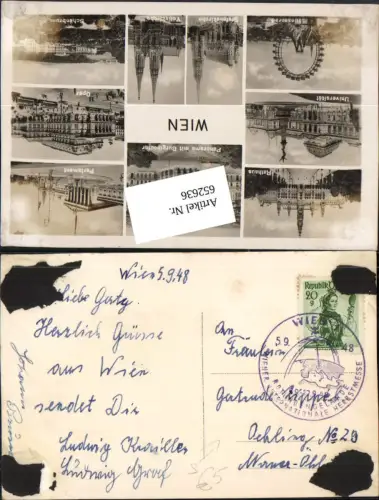 Schönbrunn
Votivkirche
Stefanskirche
Riesenrad
Oper
Universität
WIEN
Parlament
Panorama mit Burgtheater
Rathaus
Artikel Nr.
652636
Wien 5.9.48
Liebe Gerty.
Herzlich Grüsse
aus Wien
sendet Dir
Ludwig
Ludwig Graf
An
Fräulein
Gertrude
Oehling No 20
Republik
20
g
WIEN
5.9. 48
INTERNATIONALE HERBSTMESSE
565